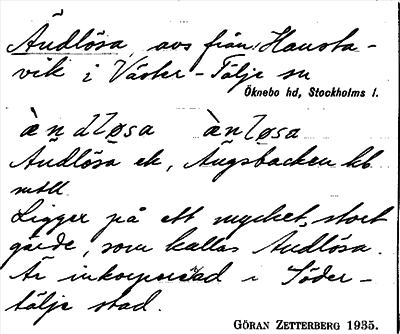 Ändlösa, avs från Hausta-
vik i Väster-Tälje sn
Öknebo hd, Stockholms l.
ändløsa  änløsa
Ändlösa ek, Ängsbacken kb
mtll.
Ligger på ett mycket stort
gärde, som kallas Ändlösa.
Är inkorporerad i Söder-
tälje stad.
GÖRAN ZETTERBERG 1935.